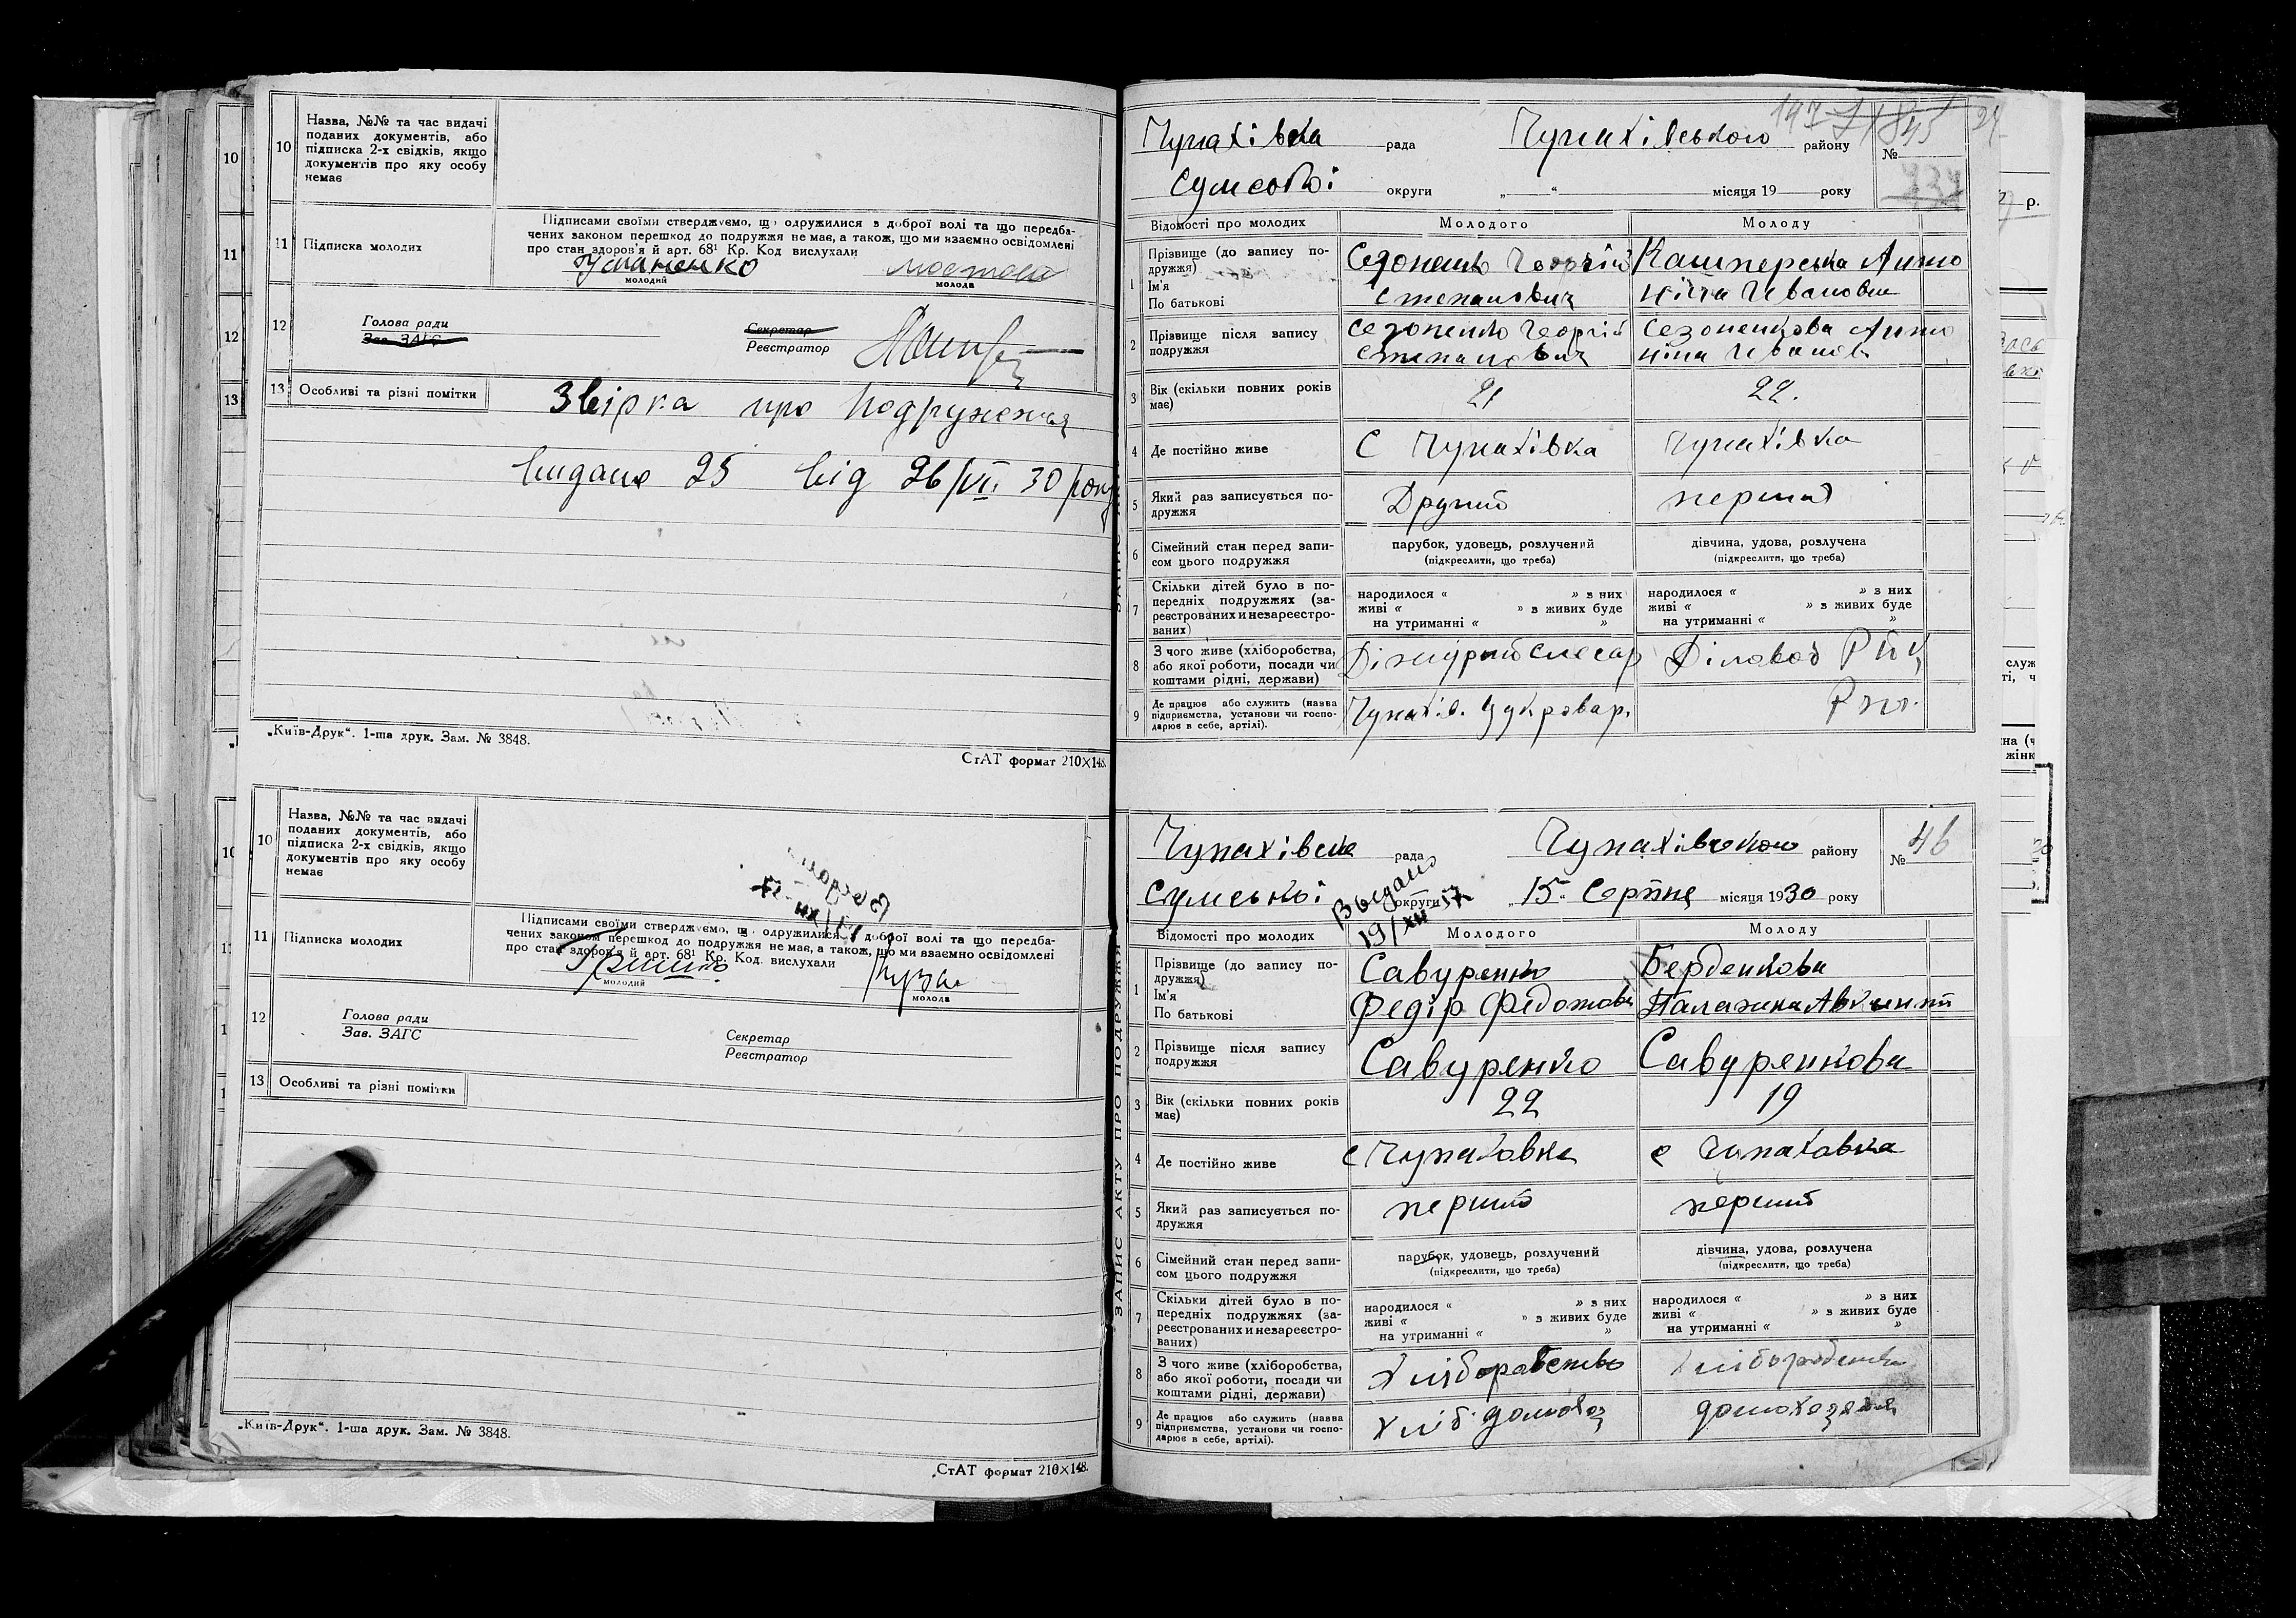 10
Назва, №№ та час видачі
поданих документів, або
підписка 2-х свідків, якщо
документів про яку особу
немає
11 Підписка молодих
Підписами своїми стверджуємо, що одружилися з доброї волі та що передба-
чених законом перешкод до подружжя немає, а також, що ми взаємно освідомлені
про стан здоров'я й арт. 68¹ Кр. Код вислухали
Гузиненко мостова
молодий молода
12
Голова ради
Зав. ЗАГС
Секретар
Реєстратор
13 Особливі та різні помітки
Звірка про подружжия
видано 25 від 26/VII 30/року
„Київ-Друк“. 1-ша друк. Зам. № 3848.
СтАТ формат 210×148.
10
Назва, №№ та час видачі
поданих документів, або
підписка 2-х свідків, якщо
документів про яку особу
немає
11 Підписка молодих
Підписами своїми стверджуємо, що одружилися з доброї волі та що передба-
чених законом перешкод до подружжя не має, а також, що ми взаємно освідомлені
про стан здоров'я й арт. 68¹ Кр. Код. вислухали
молодий молода
12
Голова ради
Зав. ЗАГС
Секретар
Реєстратор
13 Особливі та різні помітки
„Київ-Друк“. 1-ша друк. Зам. № 3848.
СтАТ формат 210×148.
ЗАПИС АКТУ ПРО ПОДРУЖЖЯ
Чупахівка рада Чупахівського району №
Сумської округи „ “ місяця 19 року
Відомості про молодих Молодого Молоду
1 Прізвище (до запису по-
дружжя)
Ім'я
По батькові
Сезоненко Георгій
Степанович
Кашперська Анто
ніна Івановна
2 Прізвище після запису
подружжя
Сезоненко Георгій
Степанович
Сезоненкова Анто
ніна Іванов
3 Вік (скільки повних років
має)
21 22.
4 Де постійно живе С Чупахівка Чупахівка
5 Який раз записується по-
дружжя
Другий перший
6 Сімейний стан перед запи-
сом цього подружжя
парубок, удовець, розлучений
(підкреслити, що треба)
дівчина, удова, розлучена
(підкреслити, що треба)
7 Скільки дітей було в по-
передніх подружжях (за-
реєстрованих и незареєстро-
ваних)
народилося « » з них
живі « » з живих буде
на утриманні « »
народилося « » з них
живі « » з живих буде
на утриманні « »
8 З чого живе (хліборобства,
або якої роботи, посади чи
коштами рідні, держави)
Діжурний слесар Діловод
9 Де працює або служить (назва
підприємства, установи чи госпо-
дарює в себе, артілі).
Чупахів. цукровар.
Чупахівська рада Чупахівського району № 46
Сумської округи „15“ Серпня місяця 1930 року
Выдано
19/XII 57
Відомості про молодих Молодого Молоду
1 Прізвище (до запису по-
дружжя)
Ім'я
По батькові
Савуренко
Федір Федотови
Берденкова
Палажина
2 Прізвище після запису
подружжя
Савуренко Савуренкова
3 Вік (скільки повних років
має)
22 19
4 Де постійно живе с Чупаховка с Чупаховка
5 Який раз записується по-
дружжя
перший перший
6 Сімейний стан перед запи-
сом цього подружжя
парубок, удовець, розлучений
(підкреслити, що треба)
дівчина, удова, розлучена
(підкреслити, що треба)
7 Скільки дітей було в по-
передніх подружжях (за-
реєстрованих и незареєстро-
ваних)
народилося « » з них
живі « » з живих буде
на утриманні « »
народилося « » з них
живі « » з живих буде
на утриманні « »
8 З чого живе (хліборобства,
або якої роботи, посади чи
коштами рідні, держави)
Хліборобство хліборобство
9 Де працює або служить (назва
підприємства, установи чи госпо-
дарює в себе, артілі).